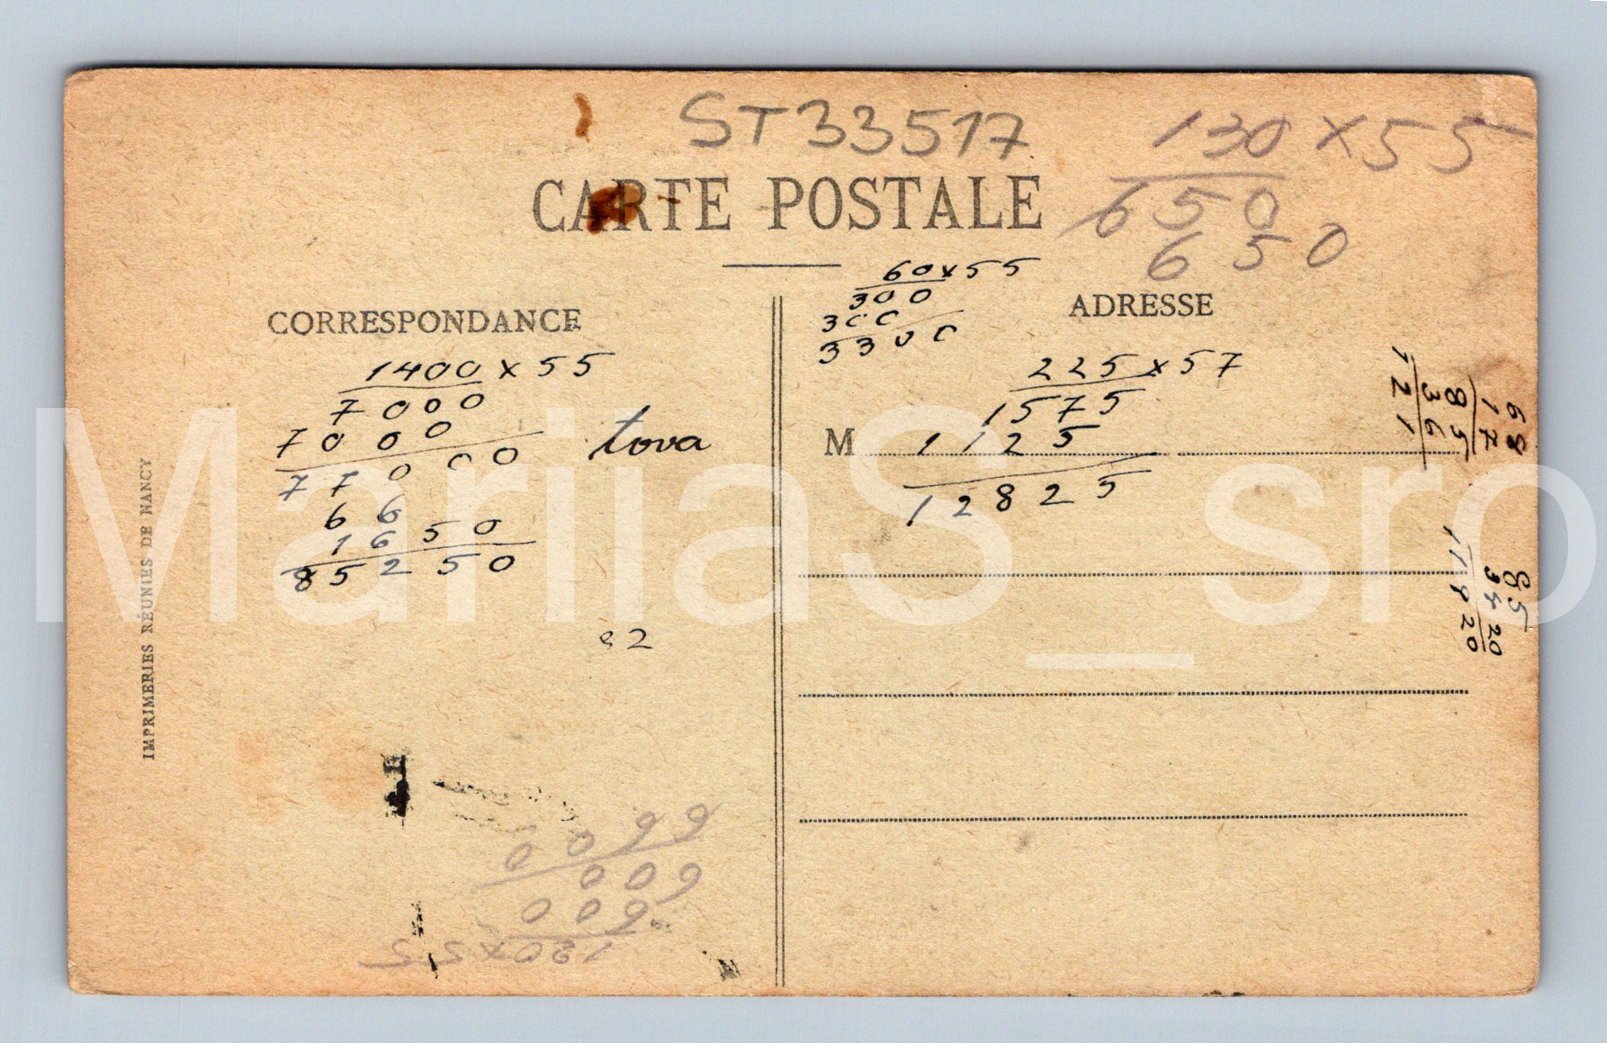 ST33517
130 x 55
650
650
CARTE POSTALE
60x55
300
300
3300
CORRESPONDANCE
ADRESSE
1400 x 55
7000
7000
77000
66
1650
85250
tova
82
225x57
1575
M 1125
12825
68
17
85
36
121
85
3420
11420
IMPRIMERIES RÉUNIES DE NANCY
120x55
600
600
6600
MariiaS_sro